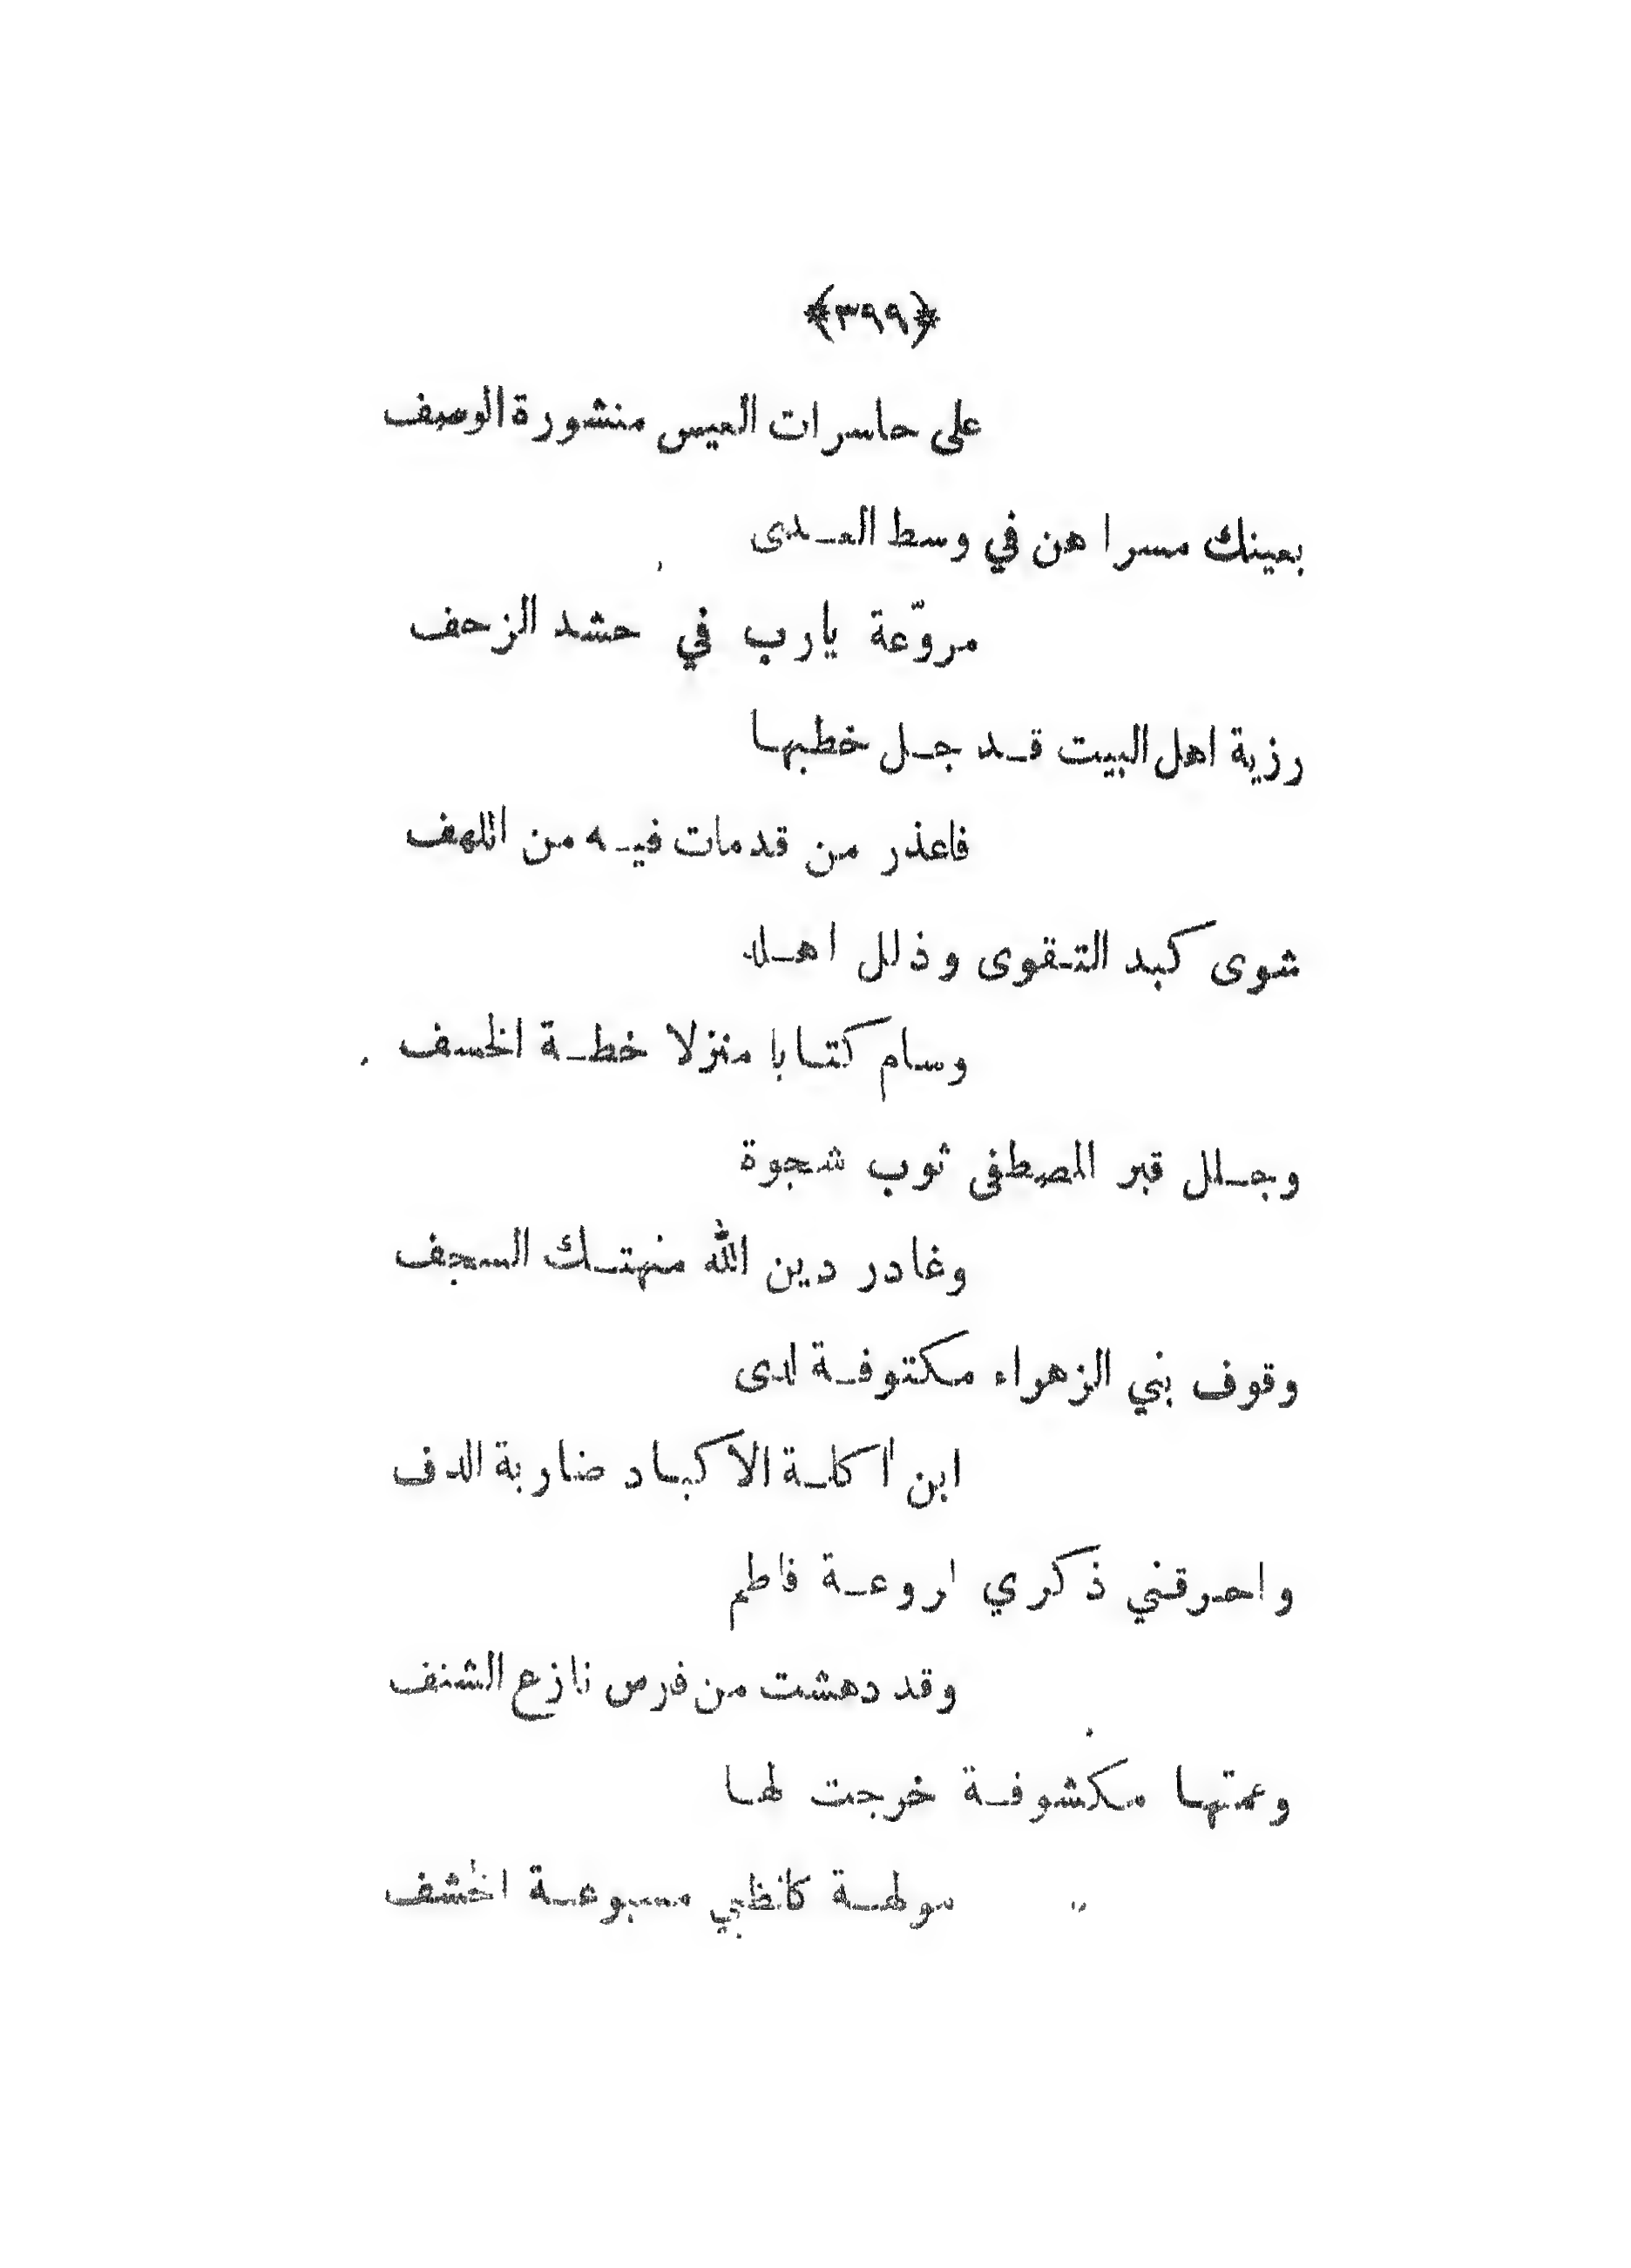 ﴿٣٩٩﴾
على حاسرات العيس منشورة الوصف
بعينك مسرا هن في وسط العـدى
مروّعة يارب في حشد الزحف
رزية اهل البيت قـد جـل خطبهـا
فاعذر من قدمات فيـه من اللهف
شوى كبد التـقوى وذلل اهـله
وسام كتـابا منزلا خطـة الخسف
وجـلل قبر المصطفى ثوب شجوة
وغادر دين الله منهتـك السجف
وقوف بني الزهراء مكتوفـة لدى
ابن أكلـة الاكبـاد ضاربة الدف
واحرقني ذكري لروعـة فاطم
وقد دهشت من فرص نازع الشنف
وعمتهـا مكشوفـة خرجت لهـا
مولهـة كالظبي مسبوعـة الخشف